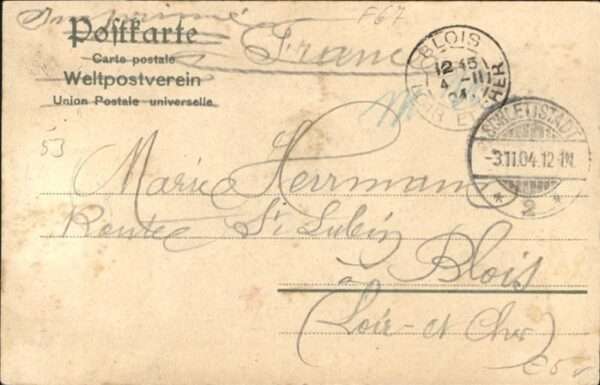 Imprimé
France
F67
Postkarte
Carte postale
Weltpostverein
Union Postale universelle
BLOIS
12 45
4 -III
04
LOIR ET CHER
SCHLETTSTADT
-3.11.04.12-1N.
* 2 *
53
Marie Herrmann
Route St Lubin
à Blois
(Loir-et-Cher)